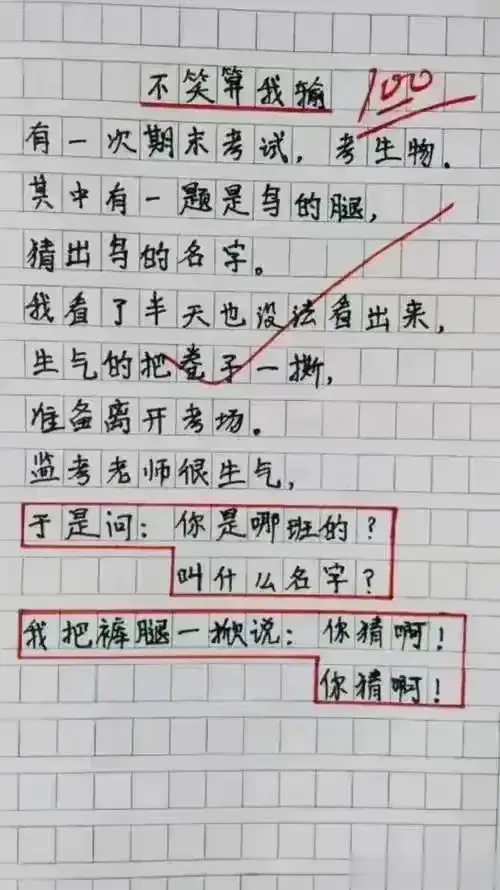 不笑算我输
100
有一次期末考试，考生物.
其中有一题是鸟的腿，
猜出鸟的名字。
我看了半天也没法看出来，
生气的把卷子一撕，
准备离开考场。
监考老师很生气，
于是问：你是哪班的？
叫什么名字？
我把裤腿一掀说：你猜啊！
你猜啊！